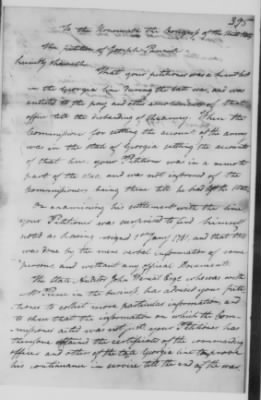 395
To the Honourable the Congress of the United States
The petition of Joseph Pannill
humbly sheweth
That your petitioner was a
in the Georgia Line during the late war, and was
entitled to the pay and other emoluments of that
office till the disbanding of the army. When the
Commissioner for settling the accounts of the army
was in the state of Georgia settling the accounts
of that line, your Petitioner was in a remote
part of the state, and was not informed of the
Commissioners being there till he had left the State.
On examining his settlement with the line
your Petitioner was surprised to find himself
noted as having resigned 1st Jany 1781, and that this
was done by the mere verbal information of some
persons and without any official document.
The State Auditor John Esqr. who was with
Mr Pierce in the business has advised your petitioner
to collect more particular information, and
to shew that the information on which the Com-
missioner acted was not just. Your Petitioner has
therefore obtained the certificates of the commanding
officer and others of the late Georgia line to prove
his continuance in service till the end of the war.